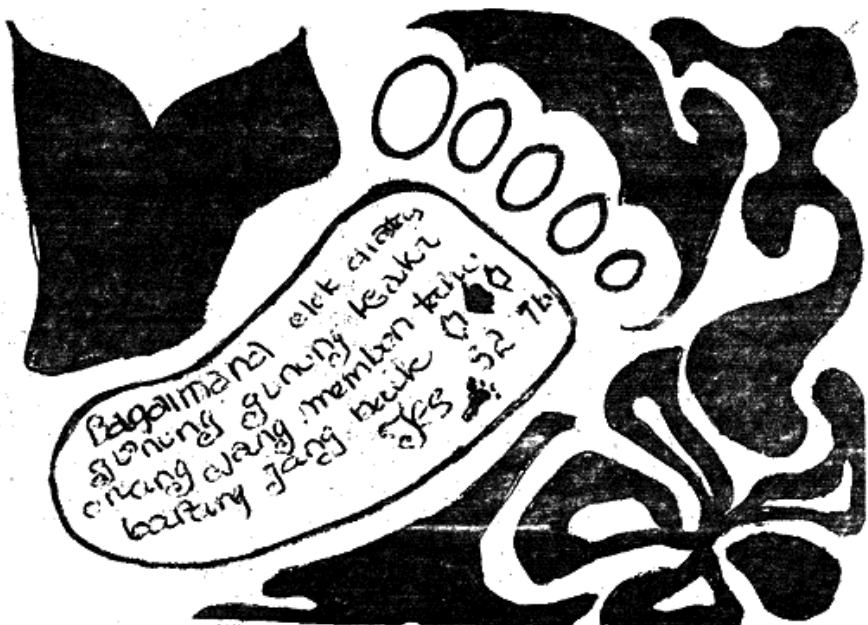 Bagaimana elok diatas
gunung gunung kaki
orang orang memberi tahu
jang baik
Jes 52 7b